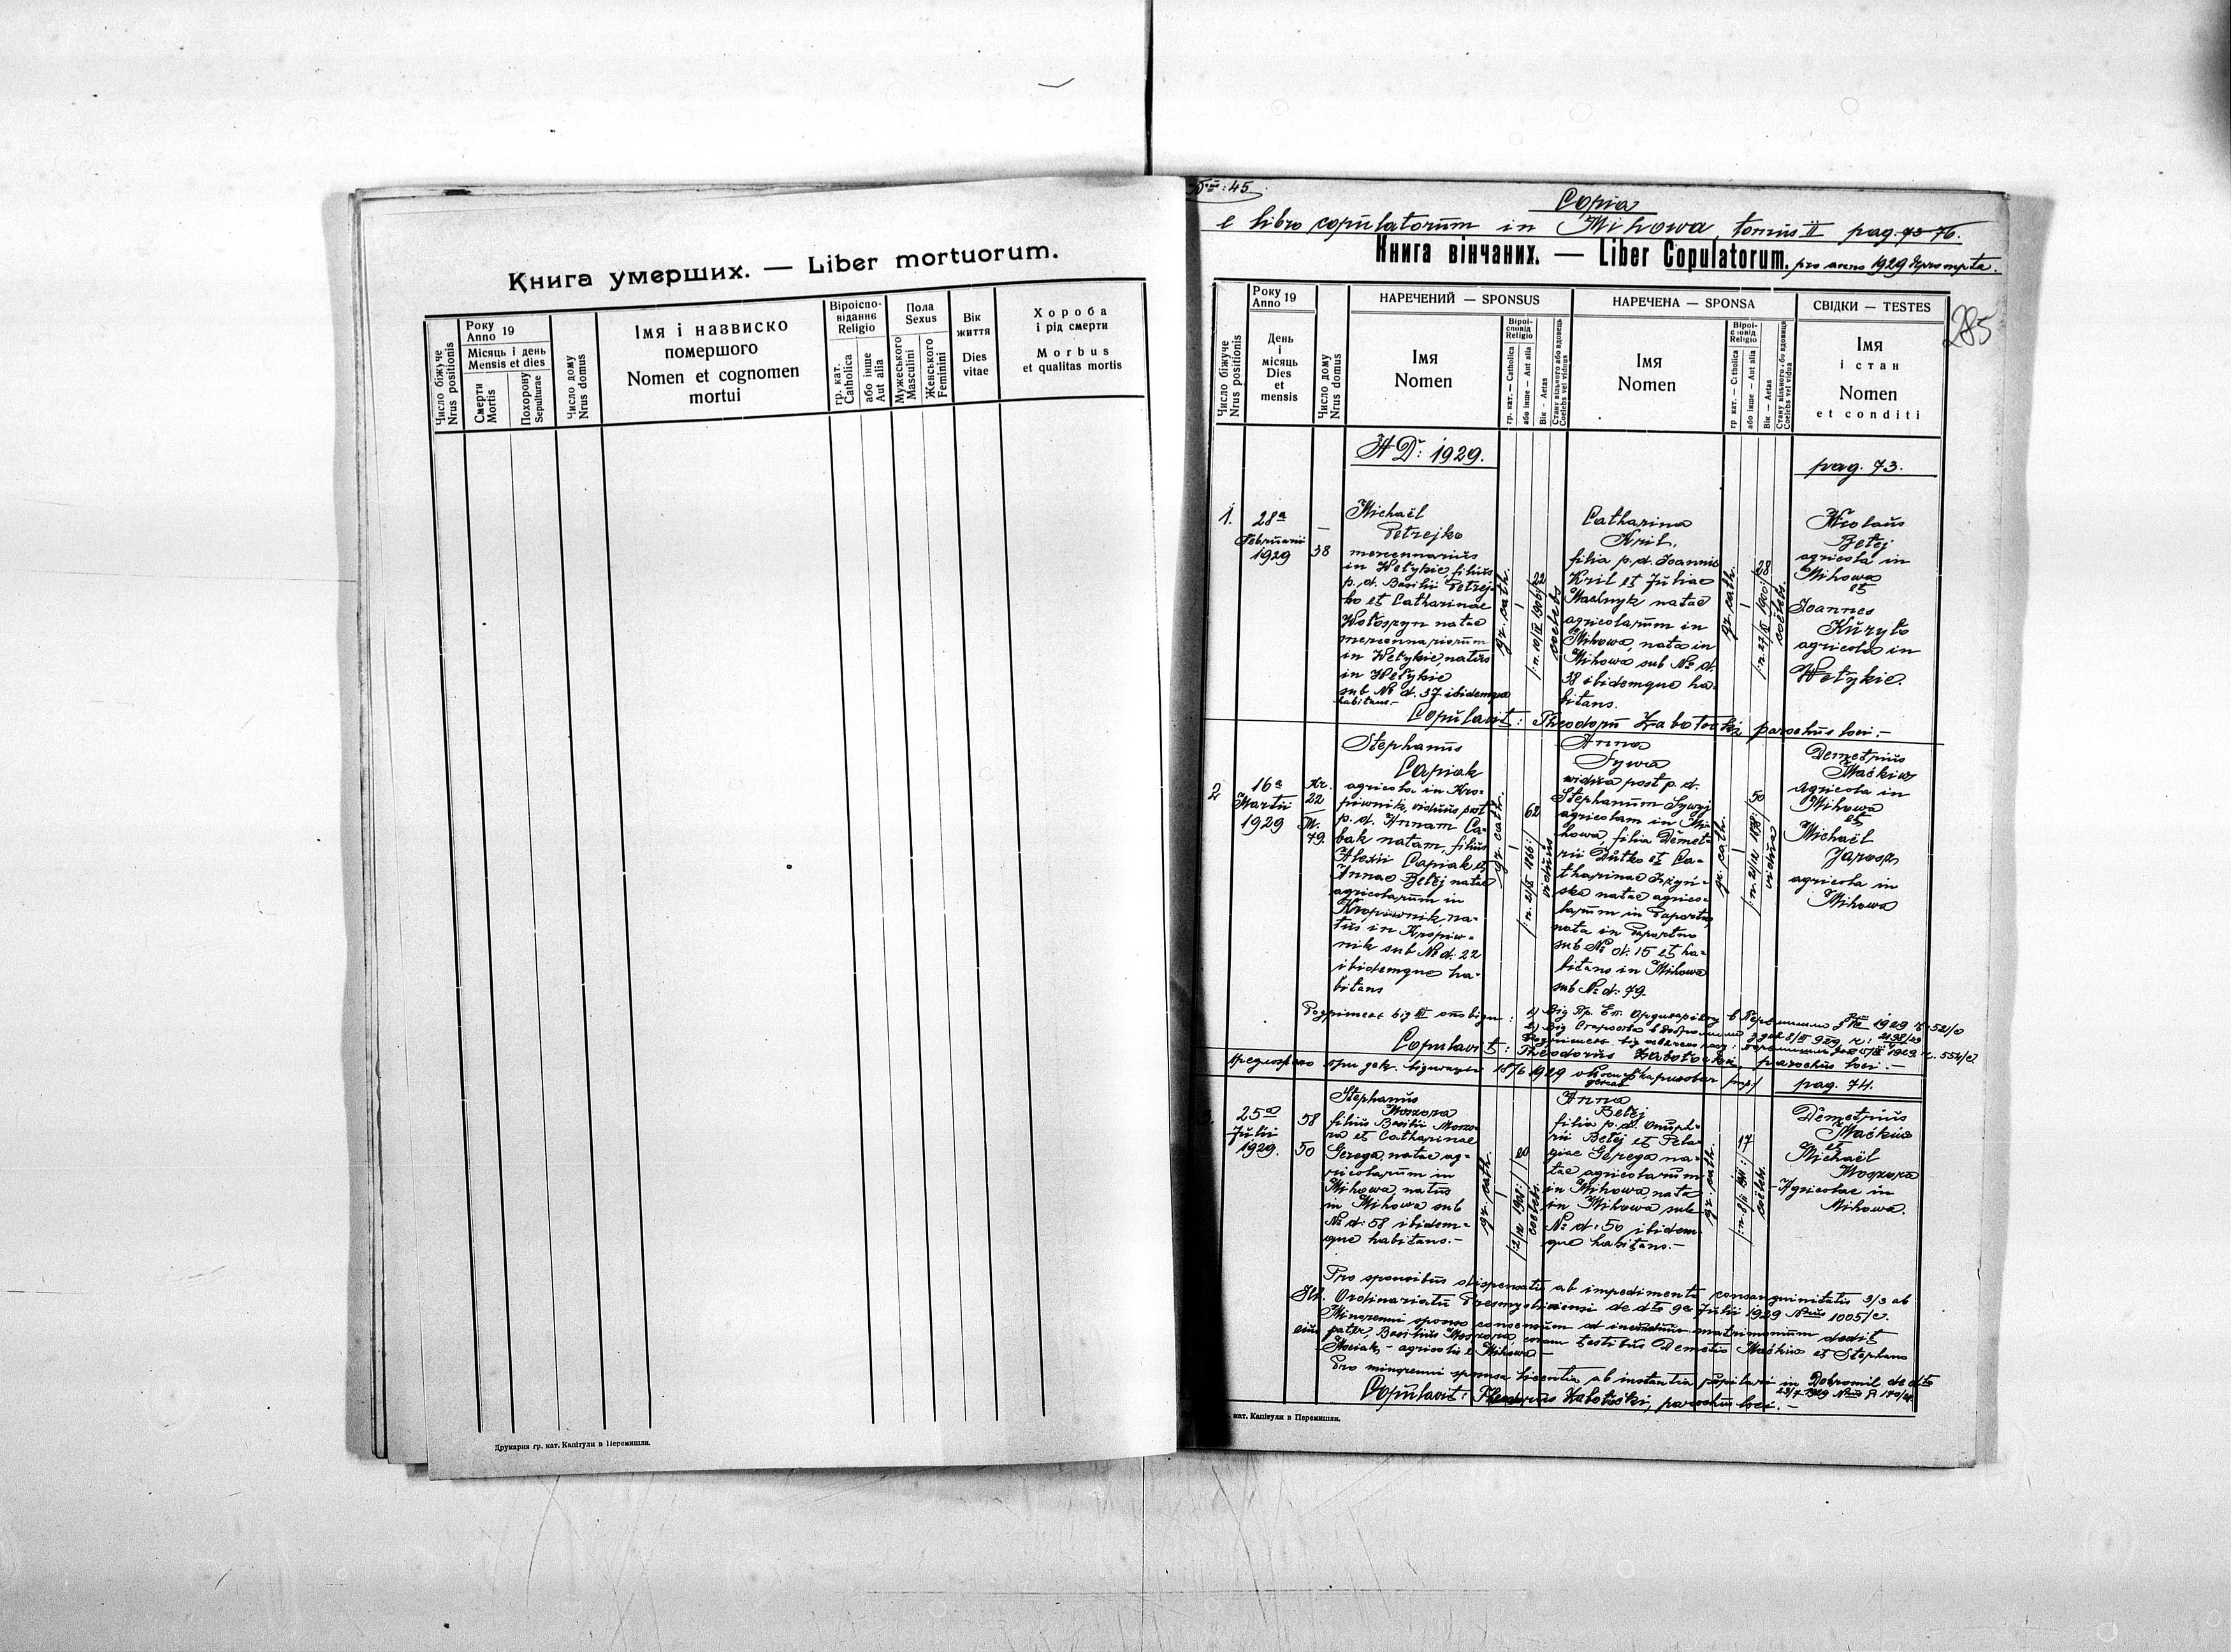 Книга умерших. — Liber mortuorum.
Число біжуче
Nrus positionis
Року
Anno 19
Місяць і день
Mensis et dies
Смерти
Mortis
Похорону
Sepulturae
Число дому
Nrus domus
Імя і назвиско
помершого
Nomen et cognomen
mortui
Віроіспо-
віданнє
Religio
гр. кат.
Catholica
або інше
Aut alia
Пола
Sexus
Мужеського
Masculini
Женського
Feminini
Вік
життя
Dies
vitae
Хороба
і рід смерти
Morbus
et qualitas mortis
Друкарня гр. кат. Капітули в Перемишли.
Copia
e libro copulatorum in Mihowa, tomus II pag. 73-76.
Книга вінчаних. — Liber Copulatorum. pro anno 1929
285
Число біжуче
Nrus positionis
Року
Anno 19
День
і
місяць
Dies
et
mensis
Число дому
Nrus domus
НАРЕЧЕНИЙ — SPONSUS
Імя
Nomen
Віроі-
сповід.
Religio
гр. кат. — Catholica
або інше — Aut alia
Вік — Aetas
Стану вільного або вдовець
Coelebs vel viduus
НАРЕЧЕНА — SPONSA
Імя
Nomen
Віроі-
сповід.
Religio
гр кат. — Catholica
або інше — Aut alia
Вік — Aetas
Стану вільного або вдовиця
Coelebs vel vidua
СВІДКИ — TESTES
Імя
і стан
Nomen
et conditi
A Dⁱ: 1929.
pag. 73.
1.
28ª
Februarii
1929
38
Michaël
Petrejko
mercennarius
in Wełykie filius
p. d. Basilii Petrej-
ko et Catharinae
Wołoszyn natae
mercennariorum
in Wełykie, natus
in Wełykie
sub Nº d. 37 ibidemque
habitans.-
gr. cath.
22
coelebs
Catharina
Kril.
filia p. d. Joannis
Kril et Juliae
natae
agricolarum in
Mihowa, nata in
Mihowa sub Nº d.
38 ibidemque ha-
bitans.
gr. cath.
28
coelebs.
Nicolaus
Betej
agricola in
Mihowa
et
Joannes
Kuryło
agricola in
Wełykie.
Copulavit: Theodorus Zabłotski parochus loci.-
2
16ª
Martii
1929
Kr.
22
M.
79.
Stephanus
Capiak
agricola in Kro-
piwnik, viduus post
p. d. Annam Ca-
bak natam, filius
Alexii Capiak et
Annae Betej natae
agricolarum in
Kropiwnik, na-
tus in Kropiw-
nik sub Nº d. 22
ibidemque ha-
bitans
gr. cath.
62
viduus
Anna
Sywa
vidua post p. d.
Stephanum Sywyj
agricolam in Mi-
howa, filia Demet-
rii Dutko et Ca-
tharinae
natae agrico-
larum in Paportno
nata in Paportno
sub Nº d: 15 et ha-
bitans in Mihowa
sub Nº d: 79.
gr. cath.
50
vidua
Demetrius
Maćkiw
agricola in
Mihowa
et
Michaël
Jarosz
agricola in
Mihowa
Copulavit: Theodorus Zabłotski, parochus loci.-
pag. 74.
25ª
Julii
1929.
58
50
Stephanus
Moszora
filius Basilii Moszo-
ra et Catharinae
Gerega, natae ag-
ricolarum in
Mihowa natus
in Mihowa sub
Nº d: 58 ibidem-
que habitans.-
gr. cath.
20
coelebs.
Anna
Betej
filia p. d. Onuph-
rii Betej et Pela-
giae Gerega na-
tae agricolarum
in Mihowa, nata
in Mihowa sub
Nº d: 50 ibidem-
que habitans.-
gr. cath.
17
coelebs.
Demetrius
Maćkiw
et
Michaël
Moszora
Agricolae in
Mihowa.
Pro sponsibus dispensatu ab impedimento consanguinitatis 3/3 ab
Ordinariatu de dto 9ª Julii 1929 1005/c.
Minorenni sponso consensum ad ineundum matrimonium dedit
eius pater, Basilius Moszora coram testibus Demetrio Maćkiw et Stephano
agricolis e Mihowa
Pro minorenni sponsa licentia ab instantia pupilari in Dobromil de dto
Copulavit: Theodorus Zabłotski, parochus loci.-
кат. Капітули в Перемишли.